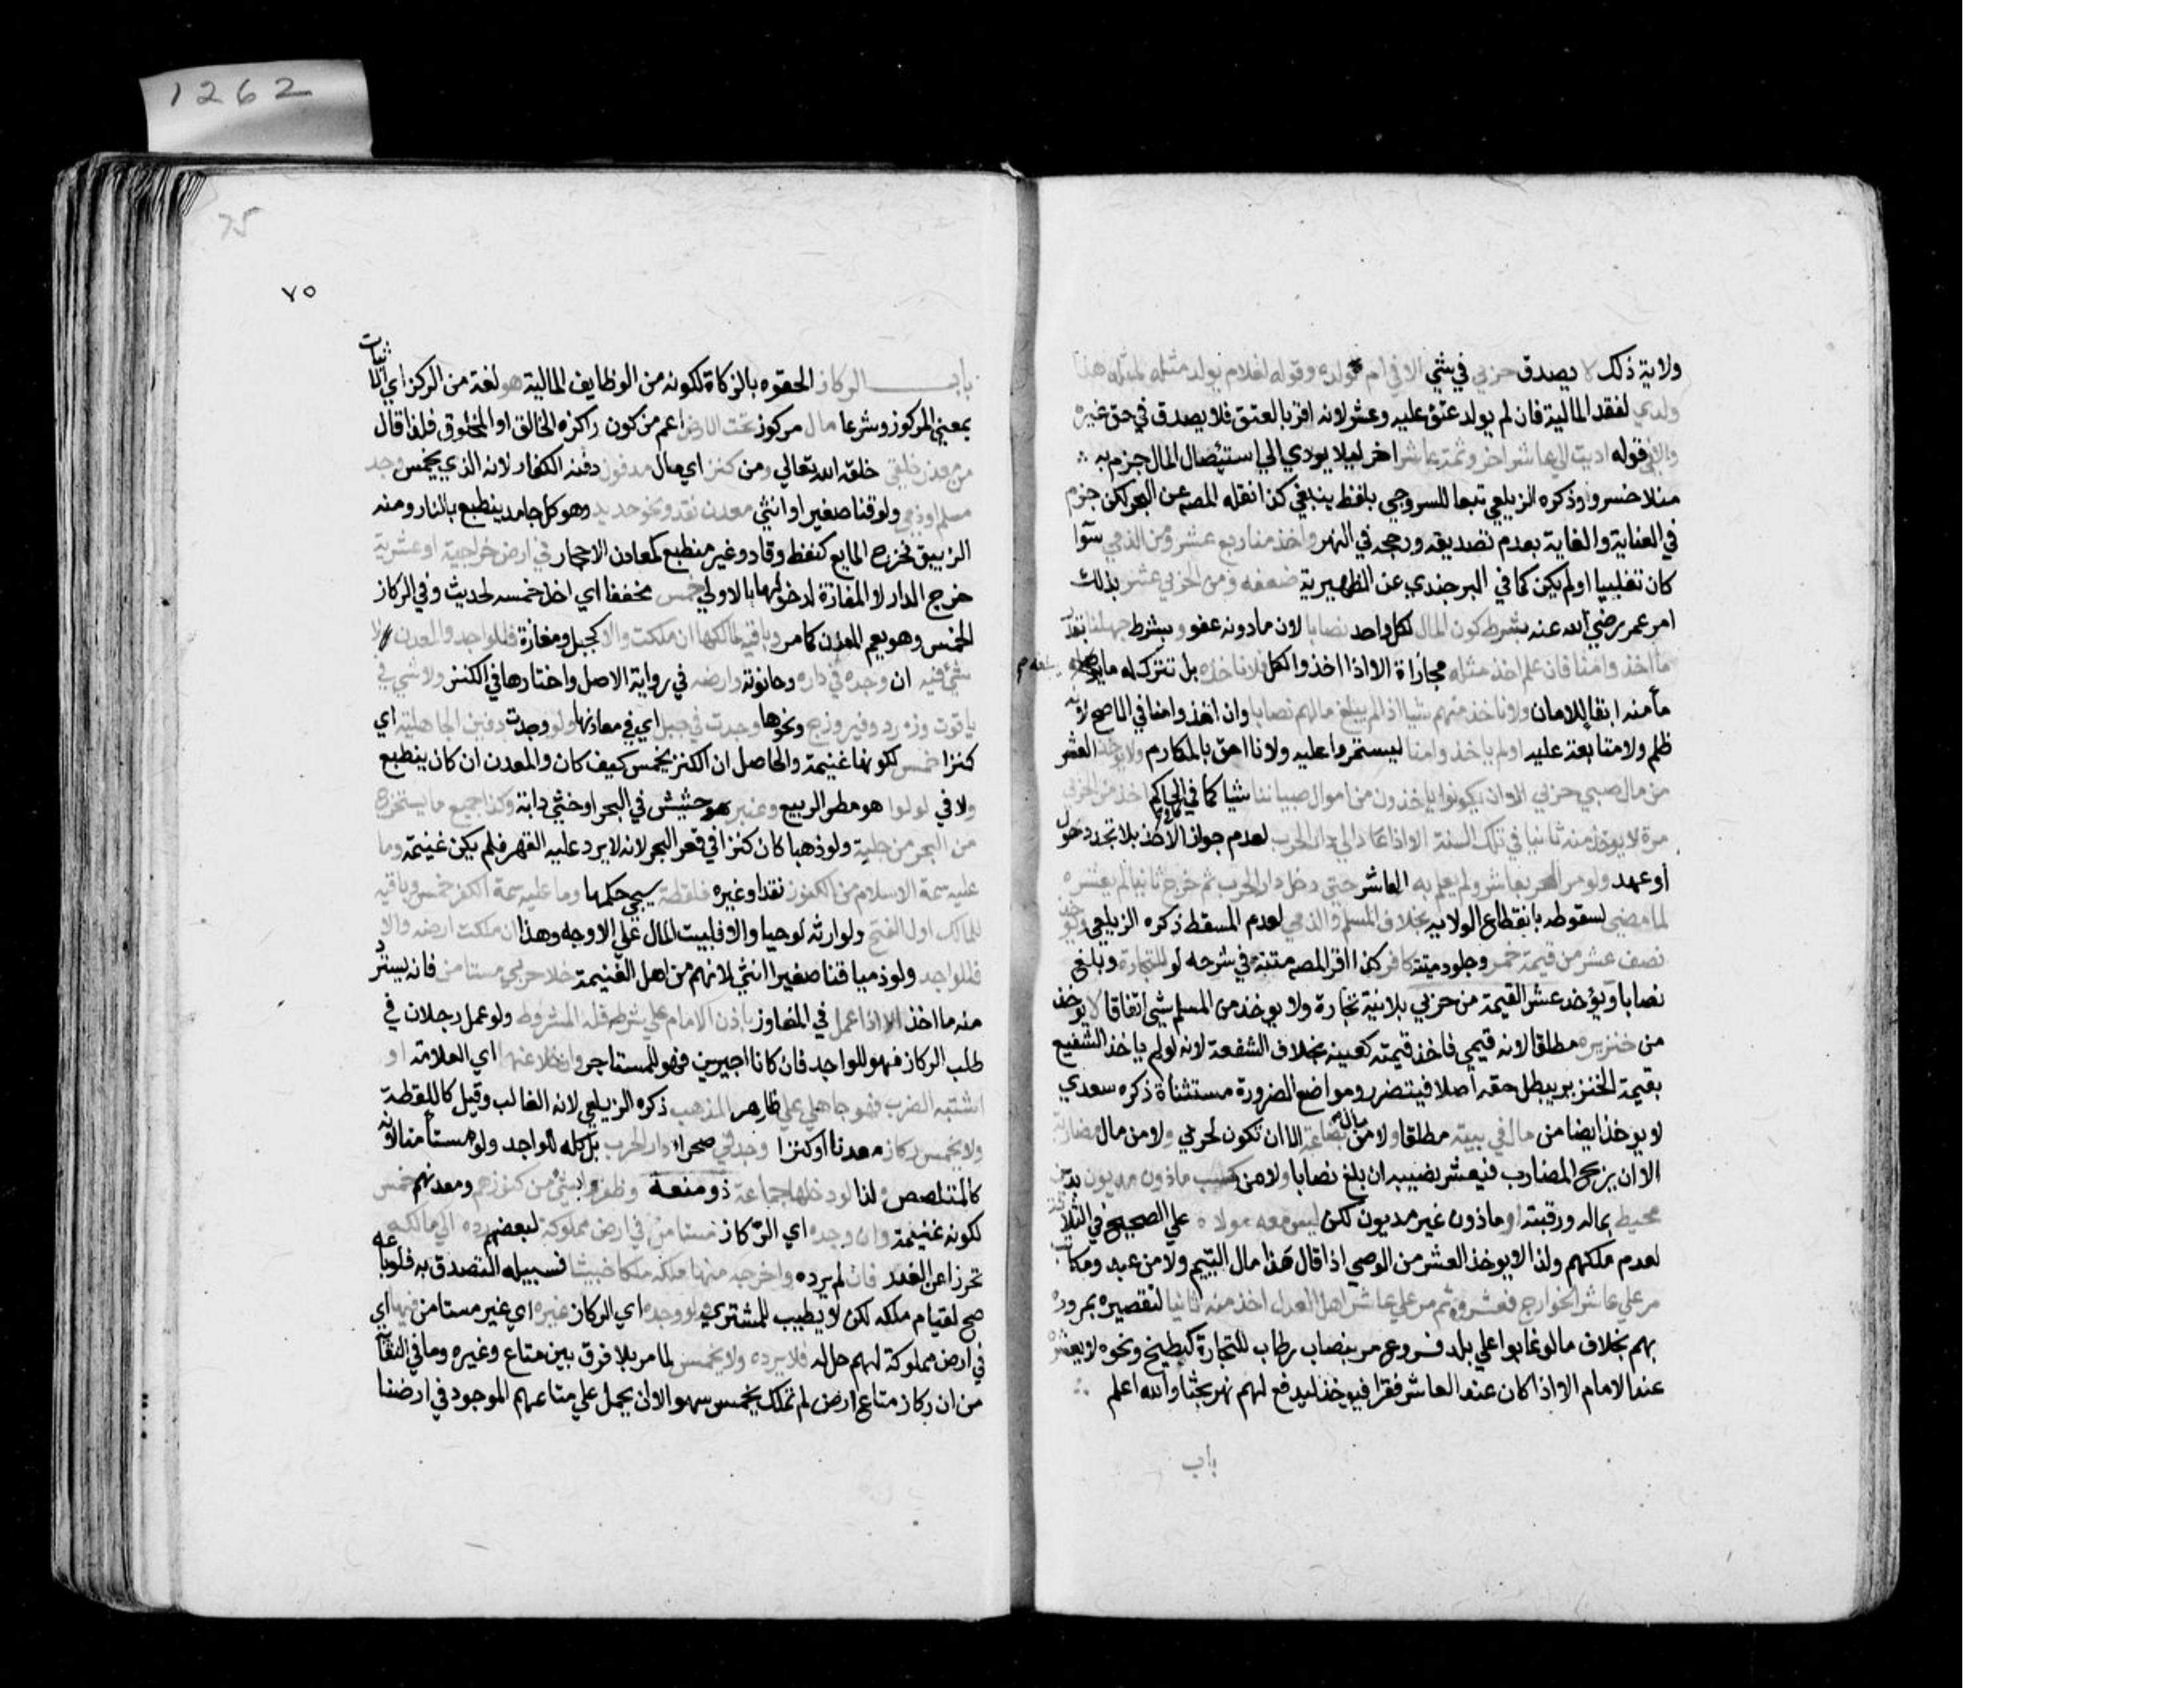 1262
ولاية ذلك لا يصدق حربي في شي الا في ام ولده وقوله لغلام يولد مثله لمثله هذا
ولدي لفقد المالية فان لم يولد عتق عليه وعشر لانه اقر بالعتق فلا يصدق في حق غيره
والا في قوله اديت الي عاشر اخر وثمة عاشر اخر ليلا يودي الي استئصال المال جزم به
منلا خسرو وذكره الزيلعي تبعا للسروجي بلفظ ينبغي كذا نقله المصه عن البحر لكن جزم
في العناية والغاية بعدم تصديقه ورجحه في النهر واخذ منا ربع عشر ومن الذمي سوا
كان تغلبيا اولم يكن كما في البرجندي عن الظهيرية ضعفه ومن الحربي عشر بذلك
امر عمر رضي الله عنه بشرط كون المال لكل واحد نصابا لان ما دونه عفو وبشرط جهلنا بقدر
ما اخذوا منا فان علم اخذ مثله مجازاة الا اذا اخذوا الكل فلا ناخذه بل نترك له ما يبلغه
مأمنه ابقا للامان ولا ناخذ منهم شيا اذا لم يبلغ مالهم نصابا وان اخذوا منا في الاصح لانه
ظلم ولا متابعة عليه اولم ياخذوا منا ليستمروا عليه ولانا احق بالمكارم ولا يوخذ العشر
من مال صبي حربي الا ان يكونوا ياخذون من اموال صبياننا شيا كما في كافي الحاكم اخذ من الحربي
مرة لا يوخذ منه ثانيا في تلك السنة الا اذا عاد الي دار الحرب لعدم جواز الاخذ بلا تجدد حول
أو عهد ولو مر الحربي بعاشر ولم يعلم به العاشر حتى دخل دار الحرب ثم خرج ثانيا لم يعشره
لما مضي لسقوطه بانقطاع الولاية بخلاف المسلم والذمي لعدم المسقط ذكره الزيلعي ويوخذ
نصف عشر من قيمة خمر وجلود ميتة كافر كذا اقر المصه متنه في شرحه لو للتجارة وبلغ
نصابا ويؤخذ عشر القيمة من حربي بلا نية تجارة ولا يوخذ من المسلم شي اتفاقا لا يوخذ
من خنزيره مطلقا لانه قيمي فاخذ قيمته كعينه بخلاف الشفعة لانه لو لم ياخذ الشفيع
بقيمة الخنزير يبطل حقه اصلا فيتضرر ومواضع الضرورة مستثناة ذكره سعدي
لا يوخذ ايضا من مال في بيته مطلقا ولا من مال بضاعة الا ان تكون لحربي ولا من مال مضاربة
الا ان يربح المضارب فيعشر نصيبه ان بلغ نصابا ولا من كسب ماذون مديون بدين
محيط بماله ورقبته او ماذون غير مديون لكن ليس معه مولاه علي الصحيح في الثلاثة
لعدم ملكهم ولذا لا يوخذ العشر من الوصي اذا قال هذا مال اليتيم ولا من عبد ومكاتب
مر علي عاشر الخوارج فعشروه ثم مر علي عاشر اهل العدل اخذ منه ثانيا لتقصيره بمروره
بهم بخلاف ما لو غلبوا علي بلد فروع مر بنصاب رطاب للتجارة كبطيخ ونحوه لا يعشره
عند الامام الا اذا كان عند العاشر فقرا فيوخذ ليدفع لهم نهر بحثا والله اعلم
باب
75
٧٥
باب الركاز الحقوه بالزكاة لكونه من الوظايف المالية هو لغة من الركز اي الاثبات
بمعني المركوز وشرعا مال مركوز تحت الارض اعم من كون راكزه الخالق او المخلوق فلذا قال
من معدن خلقي خلقه الله تعالي ومن كنز اي مال مدفون دفنه الكفار لانه الذي يخمس وجد
مسلم او ذمي ولو قنا صغيرا او انثي معدن نقد ونحو حديد وهو كل جامد ينطبع بالنار ومنه
الزيبق فخرج المايع كنفط وقار وغير منطبع كمعادن الاحجار في ارض خراجية او عشرية
خرج الدار لا المفازة لدخولها بالاولي خمس مخففا اي اخذ خمسه لحديث وفي الركاز
الخمس وهو يعم المعدن كما مر وباقيه لمالكها ان ملكت والا كجبل ومفازة فللواجد والمعدن لا
شي فيه ان وجده في داره وحانوته وارضه في رواية الاصل واختارها في الكنز ولا شي في
ياقوت وزمرد وفيروزج ونحوها وجدت في جبل اي في معادنها ولو وجدت دفين الجاهلية اي
كنزا خمس لكونها غنيمة والحاصل ان الكنز يخمس كيف كان والمعدن ان كان ينطبع
ولا في لولوا هو مطر الربيع وعنبر هو حشيش في البحر او خثي دابة وكذا جميع ما يستخرج
من البحر من حلية ولو ذهبا كان كنزا في قعر البحر لانه لا يرد عليه القهر فلم يكن غنيمة وما
عليه سمة الاسلام من الكنوز نقدا وغيره فلقطة سيجي حكمها وما عليه سمة الكفر خمس وباقيه
للمالك اول الفتح ولوارثه لو حيا والا فلبيت المال علي الاوجه وهذا ان ملكت ارضه والا
فللواجد ولو ذميا قنا صغيرا انثي لانهم من اهل الغنيمة خلا حربي مستامن فانه يسترد
منه ما اخذ الا اذا عمل في المفاوز باذن الامام علي شرط فله المشروط ولو عمل رجلان في
طلب الركاز فهو للواجد فان كانا اجيرين فهو للمستاجر وان خلا عنها اي العلامة او
اشتبه الضرب فهو جاهلي علي ظاهر المذهب ذكره الزيلعي لانه الغالب وقيل كاللقطة
ولا يخمس ركاز معدنا او كنزا وجد في صحراء دار الحرب بل كله للواجد ولو مستأمنا لانه
كالمتلصص لذا لو دخلها جماعة ذو منعة وظفروا بشي من كنوزهم ومعدنهم خمس
لكونه غنيمة وان وجده اي الركاز مستامن في ارض مملوكة لبعضهم رده الي مالكه
تحرزا عن الغدر فان لم يرده واخرجه منها ملكه ملكا خبيثا فسبيله التصدق به فلو باعه
صح لقيام ملكه لكن لا يطيب للمشتري ولو وجده اي الركاز غيره اي غير مستامن فيها اي
في ارض مملوكة لهم حل له فلا يرده ولا يخمس لما مر بلا فرق بين متاع وغيره وما في النقا
من ان ركاز متاع ارض لم تملك يخمس سهو الا ان يحمل علي متاعهم الموجود في ارضنا